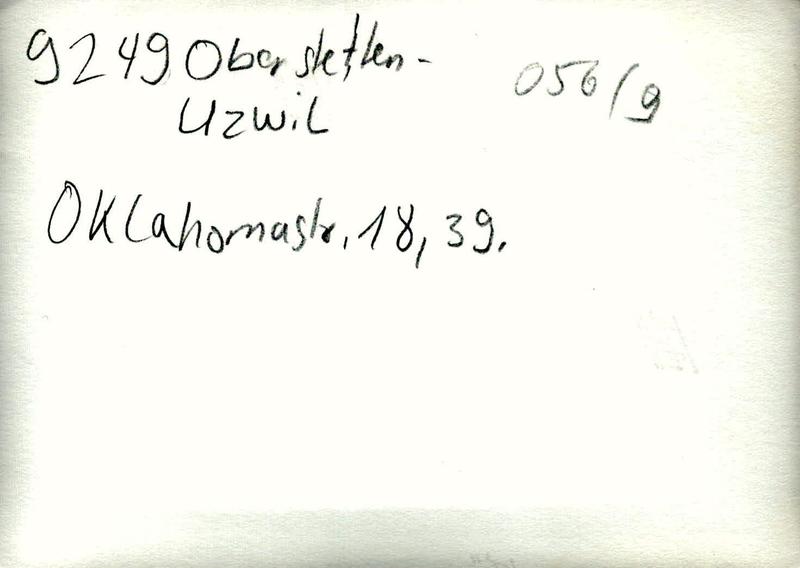 9249 Oberstetten-
Uzwil
056/9
Oklahomastr. 18, 39.